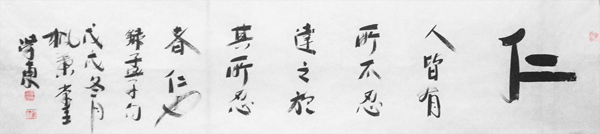 仁
人皆有
所不忍
達之於
其所忍
者仁也
録孟子句
戊戌冬月